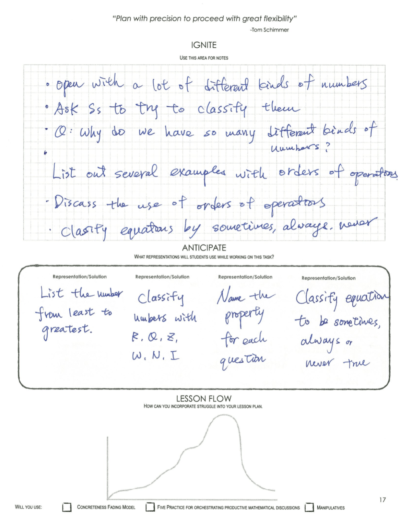 "Plan with precision to proceed with great flexibility"
-Tom Schimmer
IGNITE
USE THIS AREA FOR NOTES
• open with a lot of different kinds of numbers
• Ask Ss to try to classify them
• Q: Why do we have so many different kinds of
numbers?
•
List out several examples with orders of operations
• Discuss the use of orders of operations
• Classify equations by sometimes, always, never
ANTICIPATE
WHAT REPRESENTATIONS WILL STUDENTS USE WHILE WORKING ON THIS TASK?
Representation/Solution Representation/Solution Representation/Solution Representation/Solution
List the number
from least to
greatest.
Classify
numbers with
R, Q, Z,
W, N, I
Name the
property
for each
question
Classify equation
to be sometimes,
always or
never true
LESSON FLOW
HOW CAN YOU INCORPORATE STRUGGLE INTO YOUR LESSON PLAN
17
WILL YOU USE: CONCRETENESS FADING MODEL FIVE PRACTICE FOR ORCHESTRATING PRODUCTIVE MATHEMATICAL DISCUSSIONS MANIPULATIVES